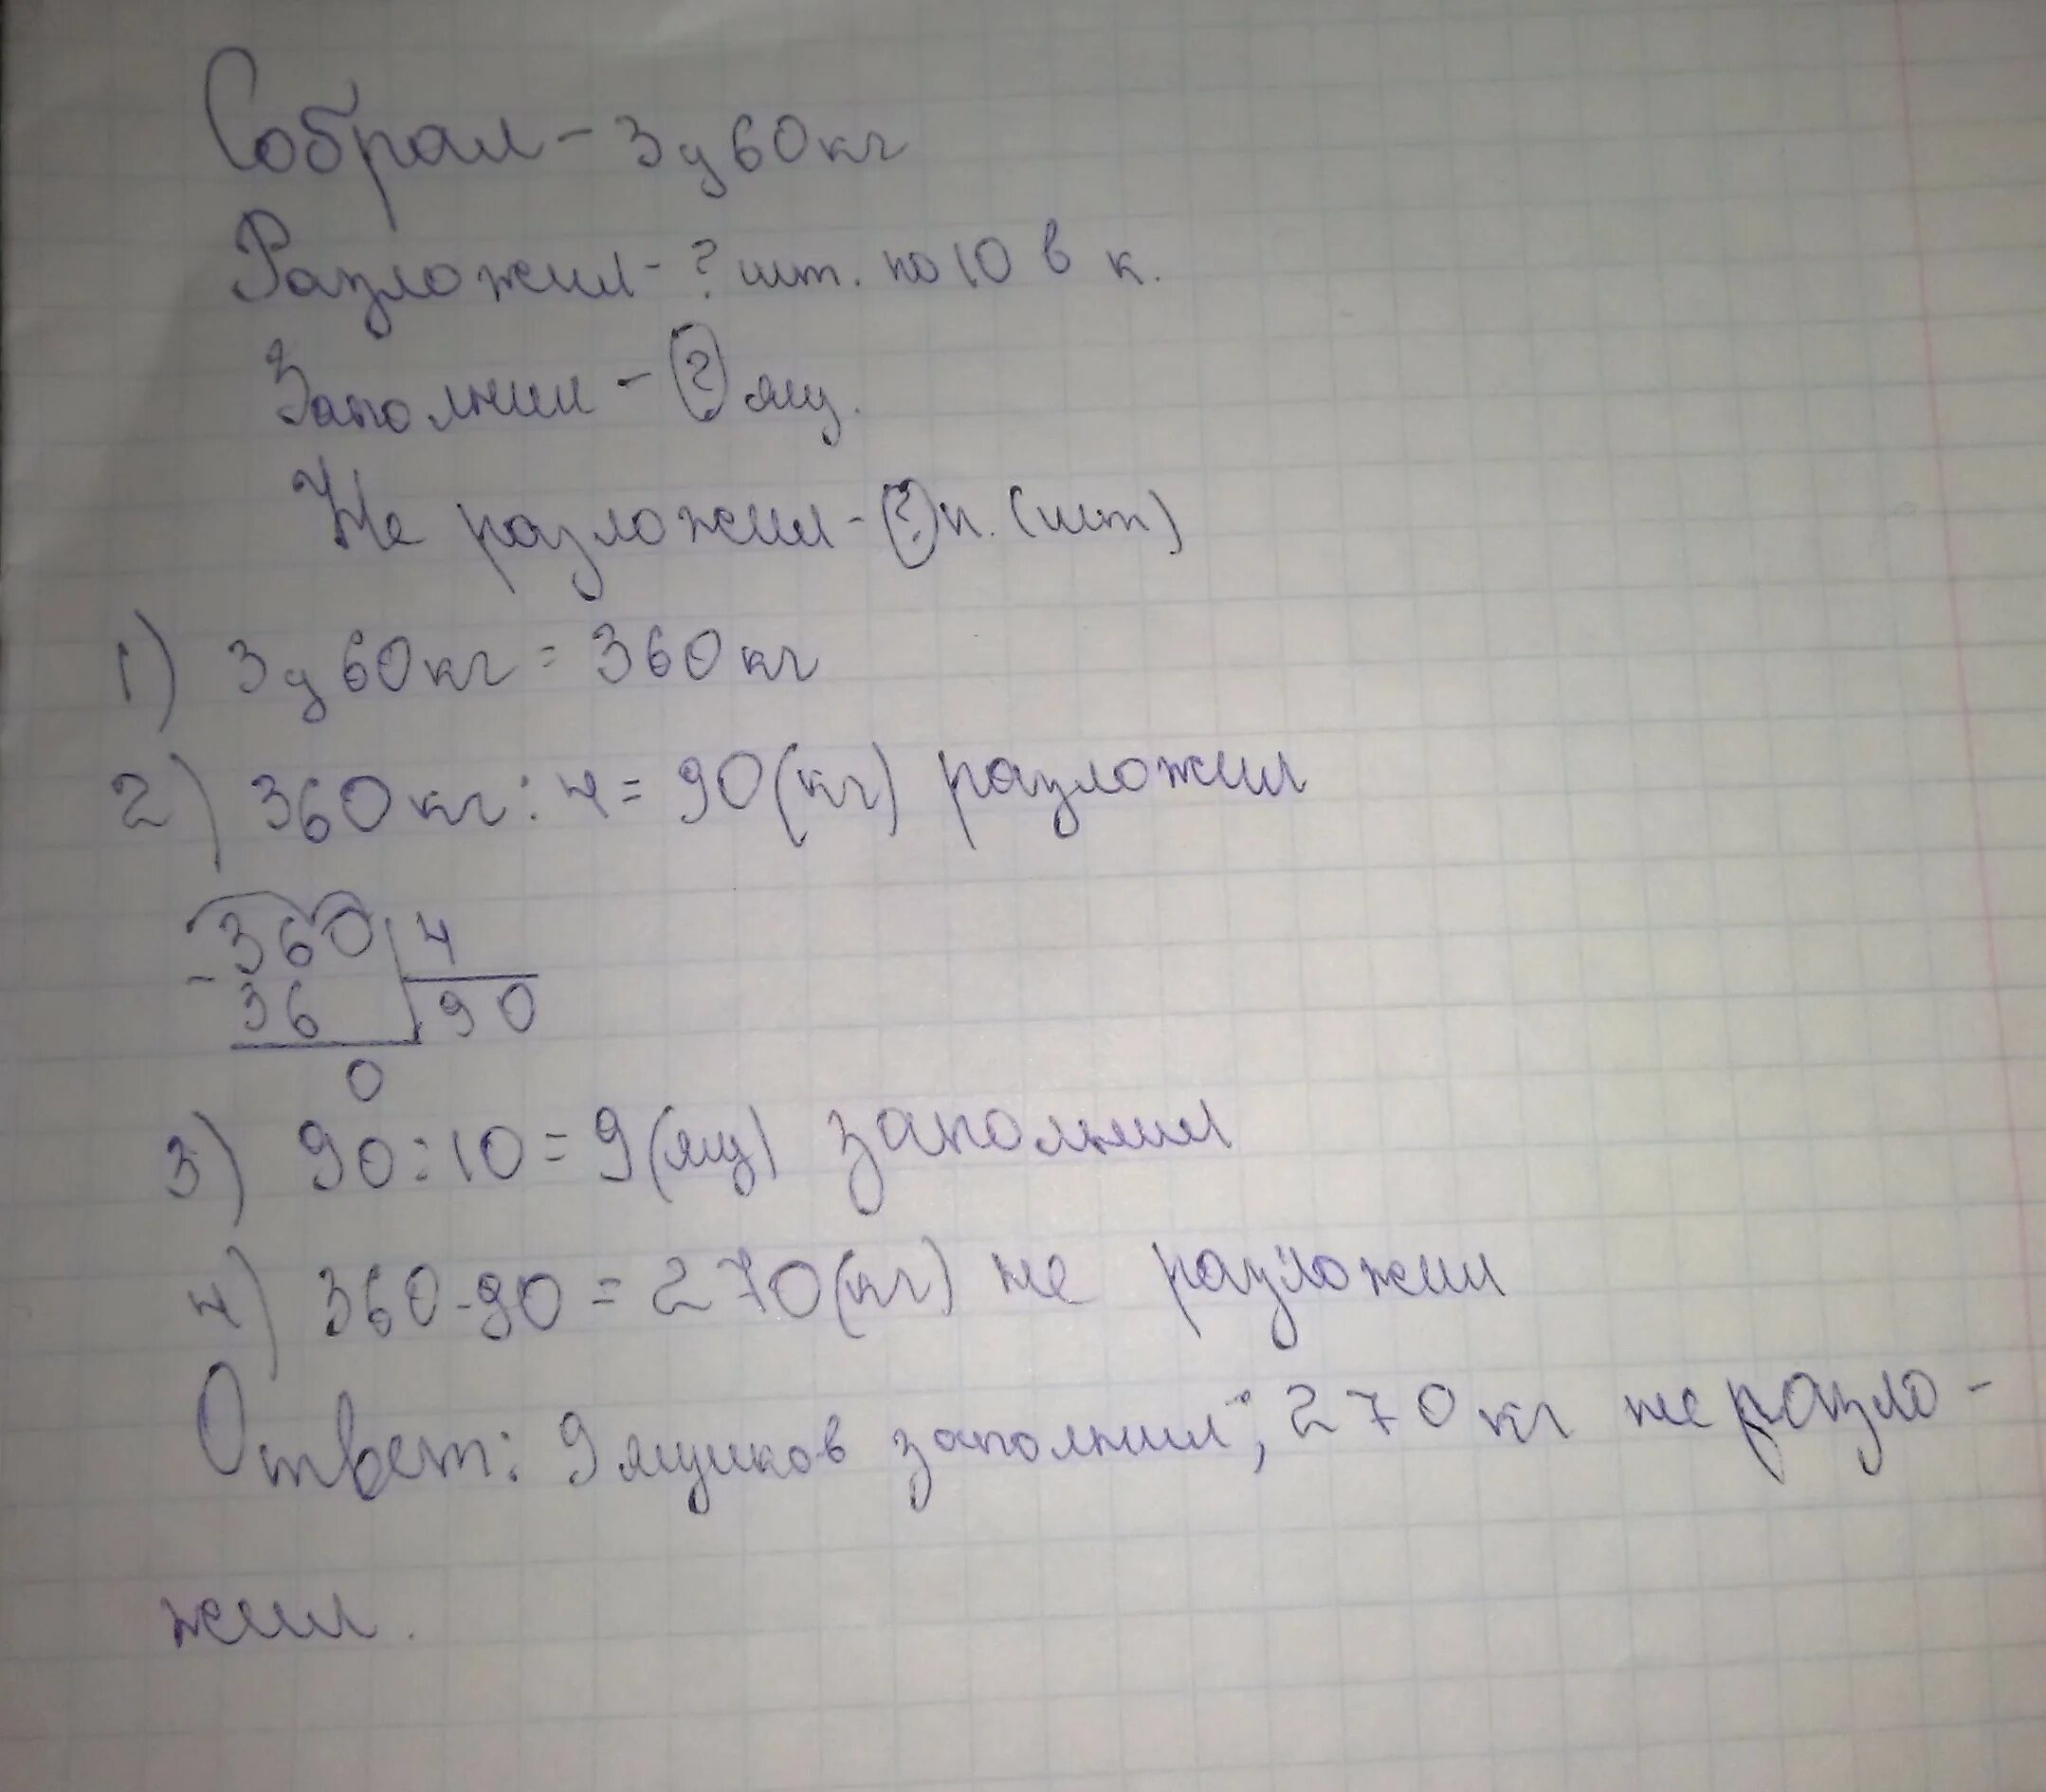 Собрал - 3ц 60кг
Разложил - ? шт. по 10 в к.
Заполнил - ? ящ.
Не разложил - ? к. (шт)
1) 3ц 60кг = 360кг
2) 360кг : 4 = 90(кг) разложил
- 360 4
36 90
0
3) 90 : 10 = 9(ящ) заполнил
4) 360 - 90 = 270(кг) не разложил
Ответ: 9 ящиков заполнил; 270 кг не разло-
жил.